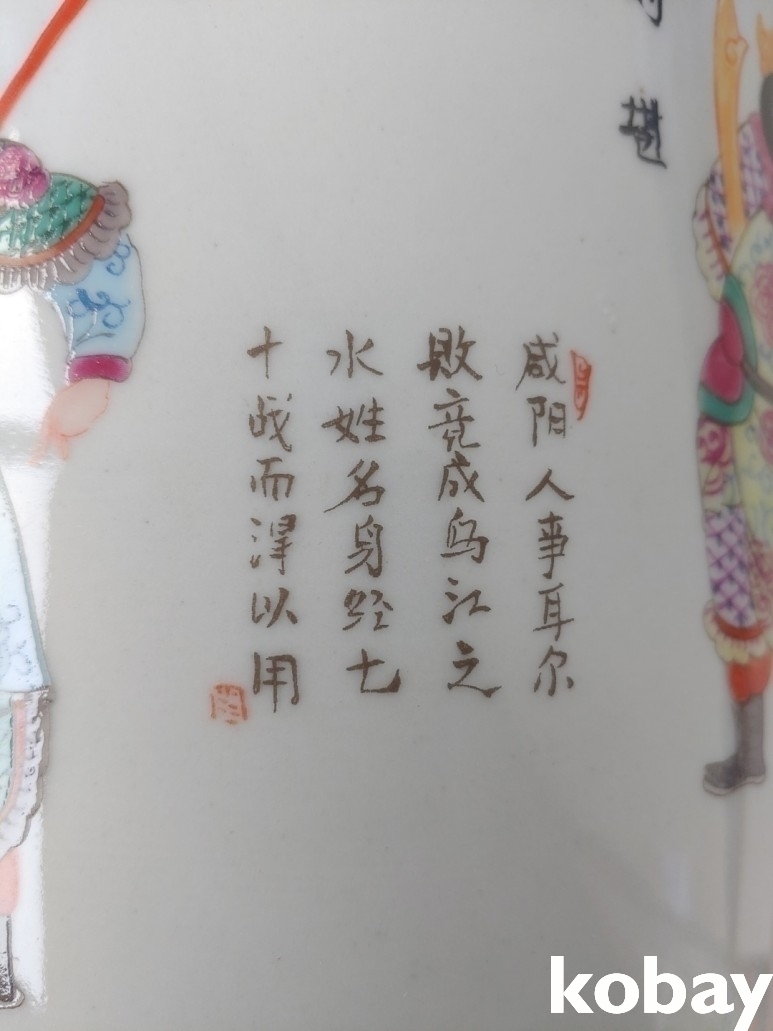 咸阳人事耳尔
败竞成乌江之
水姓名身经七
十战而泽以用
kobay